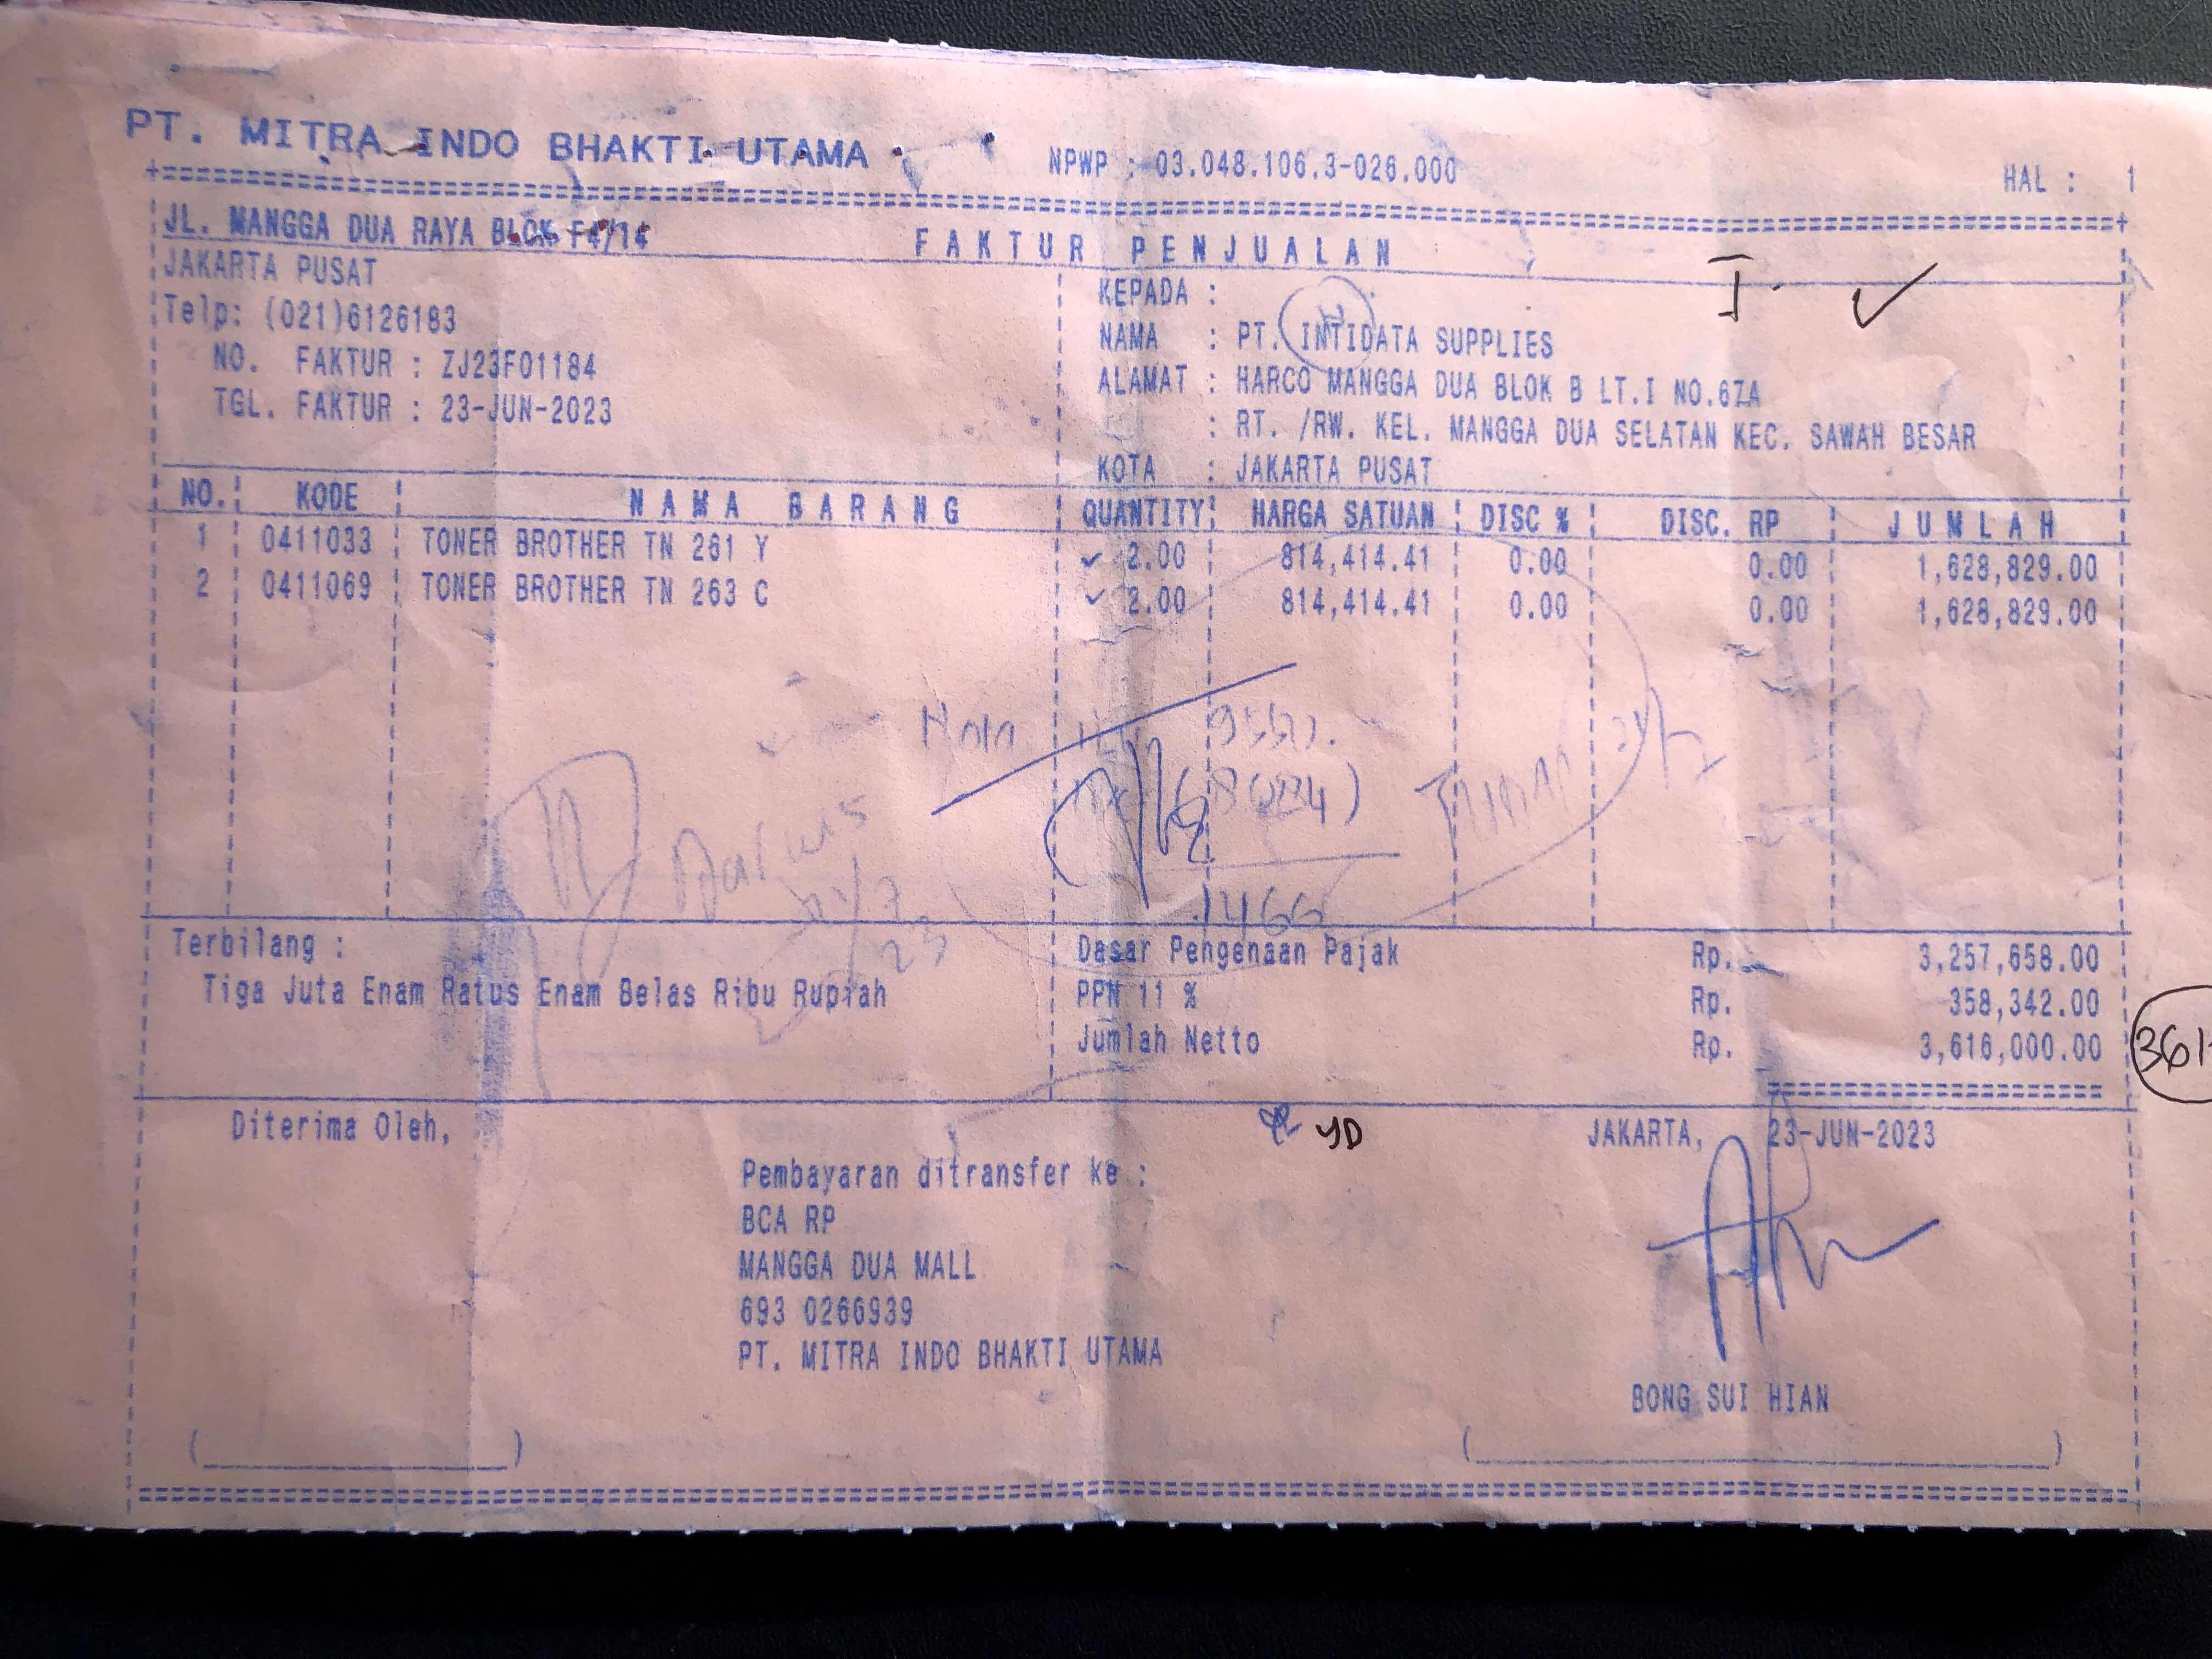 PT. MITRA INDO BHAKTI UTAMA
NPWP : 03.048.106.3-026.000
HAL : 1
JL. MANGGA DUA RAYA BLOK F4/14
FAKTUR PENJUALAN
JAKARTA PUSAT
Telp: (021)6126183
NO. FAKTUR : ZJ23F01184
TGL. FAKTUR : 23-JUN-2023
KEPADA :
NAMA : PT. INTIDATA SUPPLIES
ALAMAT : HARCO MANGGA DUA BLOK B LT.I NO.67A
: RT. /RW. KEL. MANGGA DUA SELATAN KEC. SAWAH BESAR
KOTA : JAKARTA PUSAT
NO. KODE NAMA BARANG QUANTITY HARGA SATUAN DISC % DISC. RP JUMLAH
1 0411033 TONER BROTHER TN 261 Y 2.00 814,414.41 0.00 0.00 1,628,829.00
2 0411069 TONER BROTHER TN 263 C 2.00 814,414.41 0.00 0.00 1,628,829.00
Darius
1466
Terbilang :
Tiga Juta Enam Ratus Enam Belas Ribu Rupiah
Dasar Pengenaan Pajak Rp. 3,257,658.00
PPN 11 % Rp. 358,342.00
Jumlah Netto Rp. 3,616,000.00
Diterima Oleh,
YD
JAKARTA, 23-JUN-2023
Pembayaran ditransfer ke :
BCA RP
MANGGA DUA MALL
693 0266939
PT. MITRA INDO BHAKTI UTAMA
BONG SUI HIAN